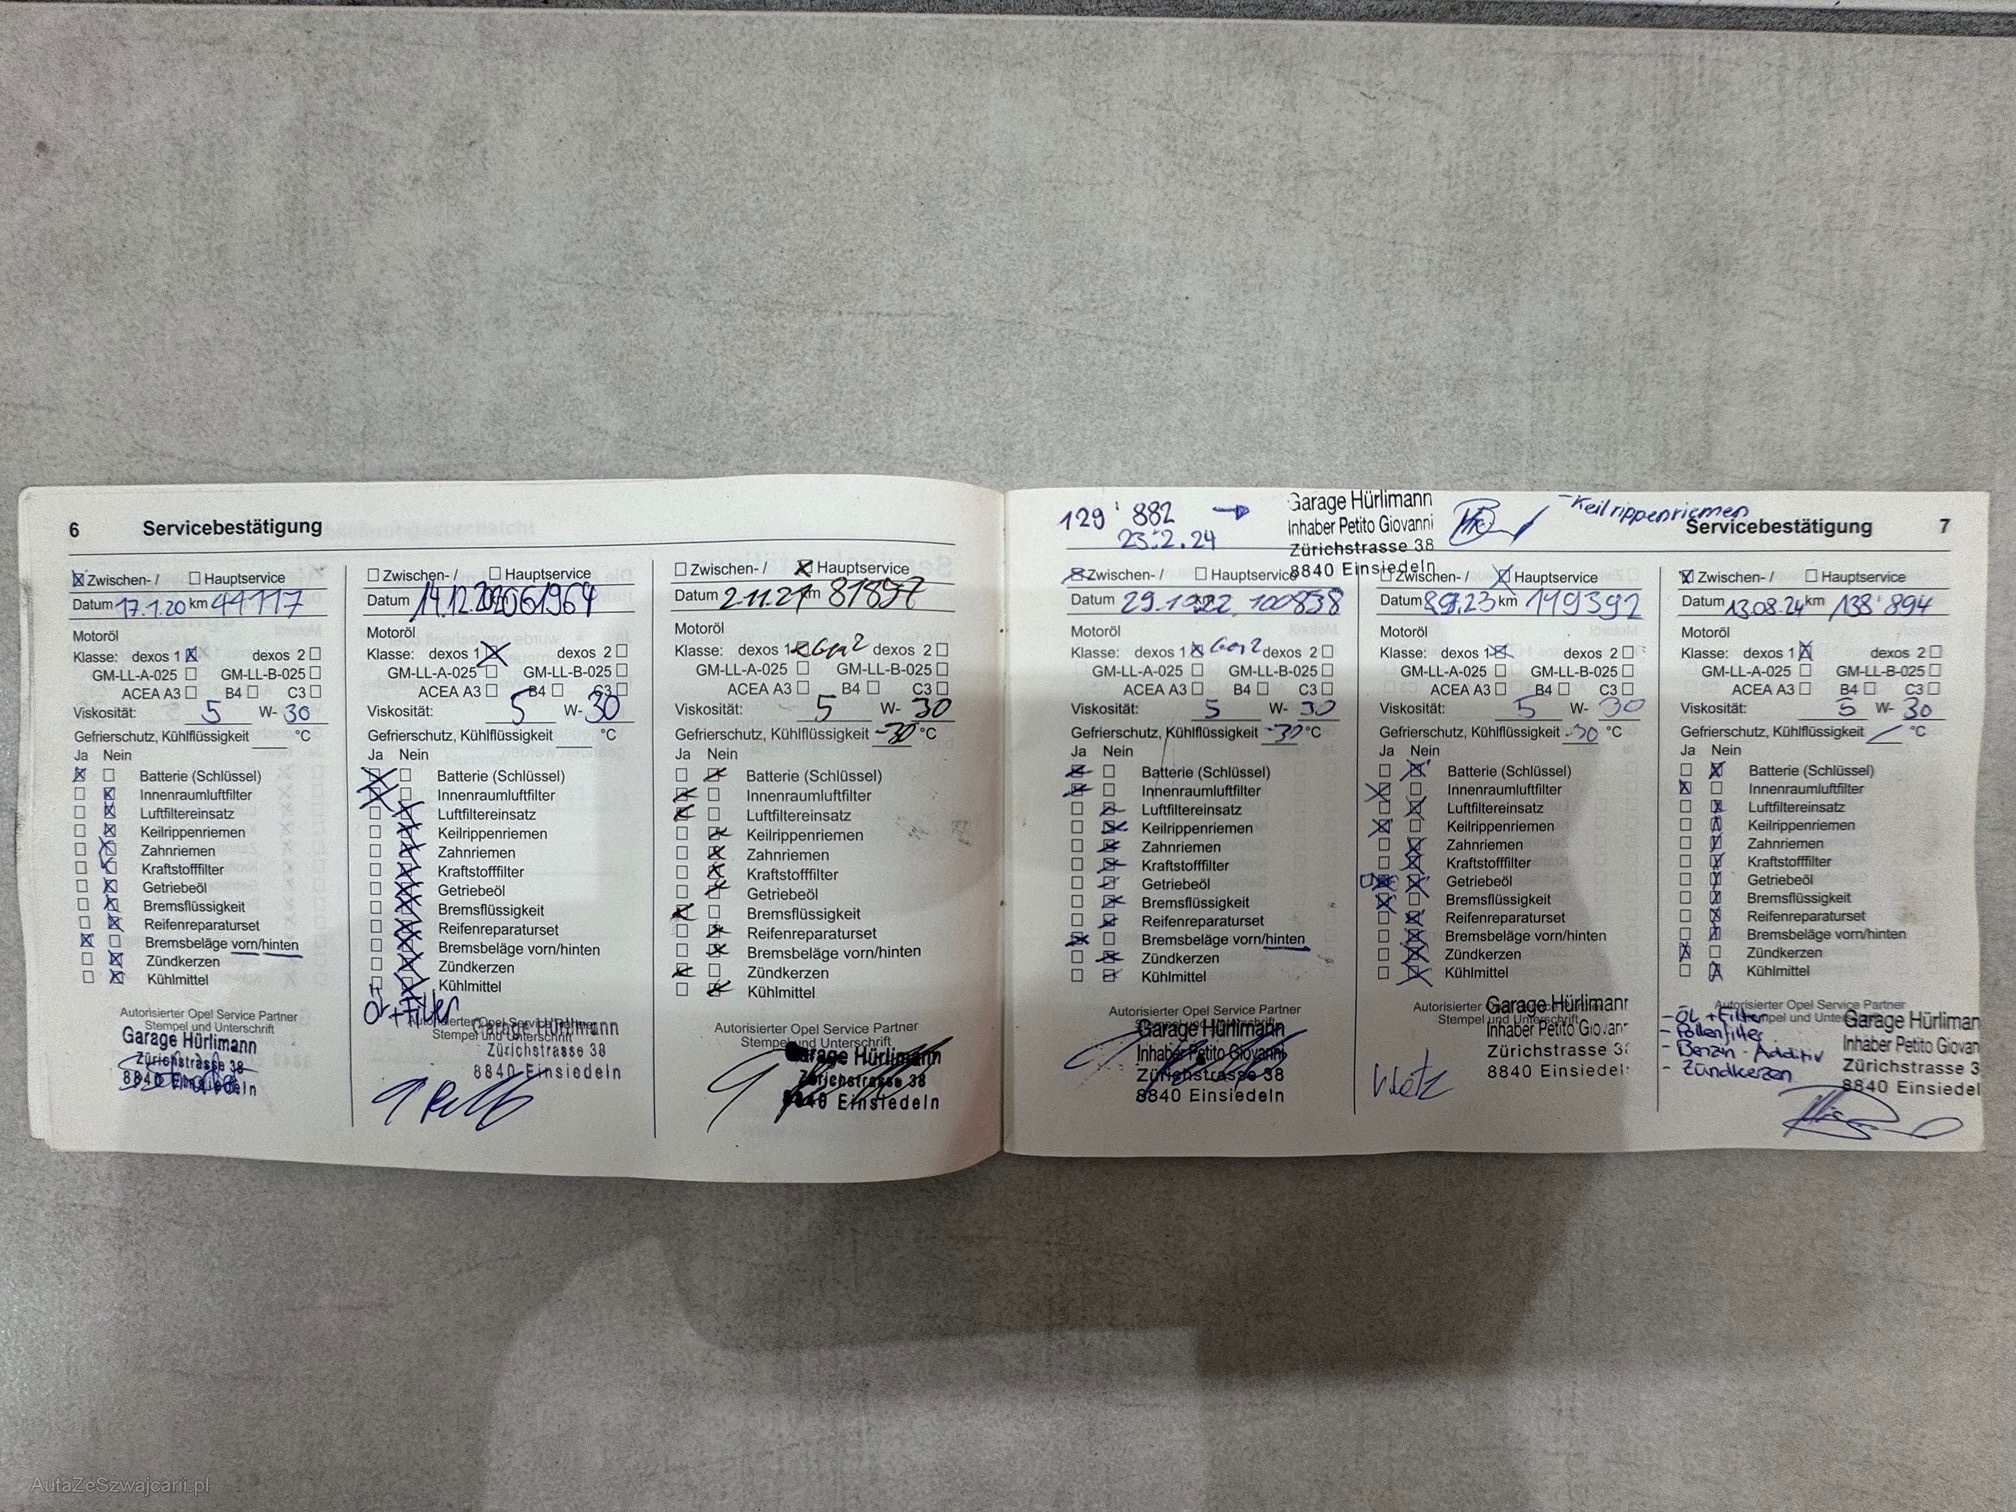 6 Servicebestätigung
Zwischen- / Hauptservice
Datum 17.1.20 km 41117
Motoröl
Klasse: dexos 1 dexos 2
GM-LL-A-025 GM-LL-B-025
ACEA A3 B4 C3
Viskosität: 5 W- 30
Gefrierschutz, Kühlflüssigkeit °C
Ja Nein
Batterie (Schlüssel)
Innenraumluftfilter
Luftfiltereinsatz
Keilrippenriemen
Zahnriemen
Kraftstofffilter
Getriebeöl
Bremsflüssigkeit
Reifenreparaturset
Bremsbeläge vorn/hinten
Zündkerzen
Kühlmittel
Autorisierter Opel Service Partner
Stempel und Unterschrift
Garage Hürlimann
Zürichstrasse 38
8840 Einsiedeln
Zwischen- / Hauptservice
Datum 14.12.20 61964
Motoröl
Klasse: dexos 1 dexos 2
GM-LL-A-025 GM-LL-B-025
ACEA A3 B4 C3
Viskosität: 5 W- 30
Gefrierschutz, Kühlflüssigkeit °C
Ja Nein
Batterie (Schlüssel)
Innenraumluftfilter
Luftfiltereinsatz
Keilrippenriemen
Zahnriemen
Kraftstofffilter
Getriebeöl
Bremsflüssigkeit
Reifenreparaturset
Bremsbeläge vorn/hinten
Zündkerzen
Kühlmittel
Öl + Filter
Autorisierter Opel Service Partner
Stempel und Unterschrift
Garage Hürlimann
Zürichstrasse 38
8840 Einsiedeln
Zwischen- / Hauptservice
Datum 2.11.21 km 81897
Motoröl
Klasse: dexos 1 Gen 2 dexos 2
GM-LL-A-025 GM-LL-B-025
ACEA A3 B4 C3
Viskosität: 5 W- 30
Gefrierschutz, Kühlflüssigkeit -30 °C
Ja Nein
Batterie (Schlüssel)
Innenraumluftfilter
Luftfiltereinsatz
Keilrippenriemen
Zahnriemen
Kraftstofffilter
Getriebeöl
Bremsflüssigkeit
Reifenreparaturset
Bremsbeläge vorn/hinten
Zündkerzen
Kühlmittel
Autorisierter Opel Service Partner
Stempel und Unterschrift
Garage Hürlimann
Zürichstrasse 38
8840 Einsiedeln
129'882 →
23.2.24
Garage Hürlimann
Inhaber Petito Giovanni
Zürichstrasse 38
8840 Einsiedeln
- Keilrippenriemen
Servicebestätigung 7
Zwischen- / Hauptservice
Datum 100858
Motoröl
Klasse: dexos 1 Gen 2 dexos 2
GM-LL-A-025 GM-LL-B-025
ACEA A3 B4 C3
Viskosität: 5 W- 30
Gefrierschutz, Kühlflüssigkeit -30 °C
Ja Nein
Batterie (Schlüssel)
Innenraumluftfilter
Luftfiltereinsatz
Keilrippenriemen
Zahnriemen
Kraftstofffilter
Getriebeöl
Bremsflüssigkeit
Reifenreparaturset
Bremsbeläge vorn/hinten
Zündkerzen
Kühlmittel
Autorisierter Opel Service Partner
Stempel und Unterschrift
Garage Hürlimann
Inhaber Petito Giovanni
Zürichstrasse 38
8840 Einsiedeln
Zwischen- / Hauptservice
Datum 8.9.23 km 119392
Motoröl
Klasse: dexos 1 dexos 2
GM-LL-A-025 GM-LL-B-025
ACEA A3 B4 C3
Viskosität: 5 W- 30
Gefrierschutz, Kühlflüssigkeit -30 °C
Ja Nein
Batterie (Schlüssel)
Innenraumluftfilter
Luftfiltereinsatz
Keilrippenriemen
Zahnriemen
Kraftstofffilter
Getriebeöl
Bremsflüssigkeit
Reifenreparaturset
Bremsbeläge vorn/hinten
Zündkerzen
Kühlmittel
Autorisierter Opel
Stempel und
Garage Hürlimann
Inhaber Petito Giovann
Zürichstrasse 38
8840 Einsiedel
Zwischen- / Hauptservice
Datum 13.08.24 km 138'894
Motoröl
Klasse: dexos 1 dexos 2
GM-LL-A-025 GM-LL-B-025
ACEA A3 B4 C3
Viskosität: 5 W- 30
Gefrierschutz, Kühlflüssigkeit / °C
Ja Nein
Batterie (Schlüssel)
Innenraumluftfilter
Luftfiltereinsatz
Keilrippenriemen
Zahnriemen
Kraftstofffilter
Getriebeöl
Bremsflüssigkeit
Reifenreparaturset
Bremsbeläge vorn/hinten
Zündkerzen
Kühlmittel
Autorisierter Opel Service Partner
- Öl + Filter
- Pollenfilter
- Benzin-Additiv
- Zündkerzen
Garage Hürliman
Inhaber Petito Giovan
Zürichstrasse 3
8840 Einsiedel
AutaZeSzwajcarii.pl